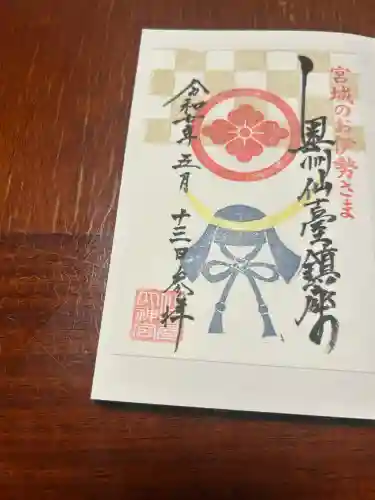 宮城のお伊勢さま
奥州仙臺鎮座の
令和七年五月十三日参拝